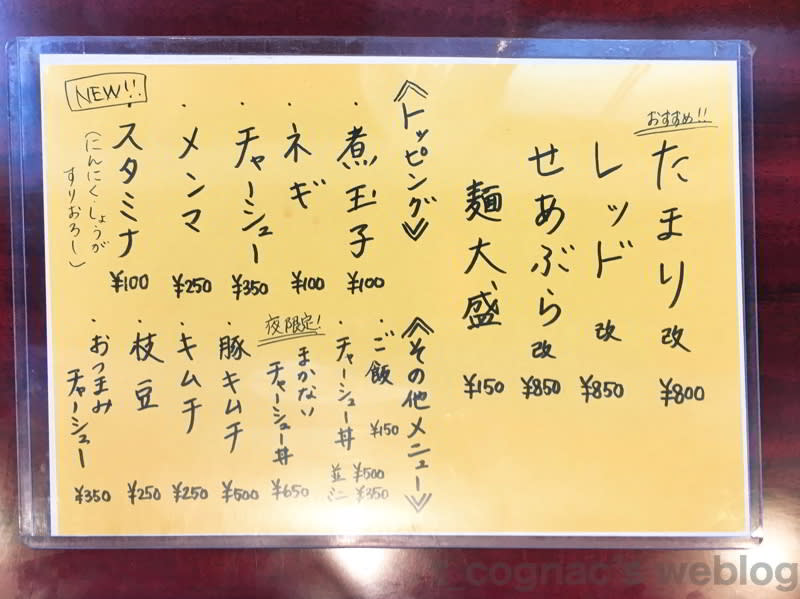 おすすめ!!
たまり改 ¥800
レッド改 ¥850
せあぶら改 ¥850
麺大盛 ¥150
《トッピング》
・煮玉子 ¥100
・ネギ ¥100
・チャーシュー ¥350
・メンマ ¥250
NEW!!
・スタミナ ¥100
(にんにく・しょうが
すりおろし)
《その他メニュー》
・ご飯 ¥150
・チャーシュー丼 並 ¥500
ミニ ¥350
夜限定!
まかない
チャーシュー丼 ¥650
・豚キムチ ¥500
・キムチ ¥250
・枝豆 ¥250
・おつまみ
チャーシュー ¥350
cognac's weblog